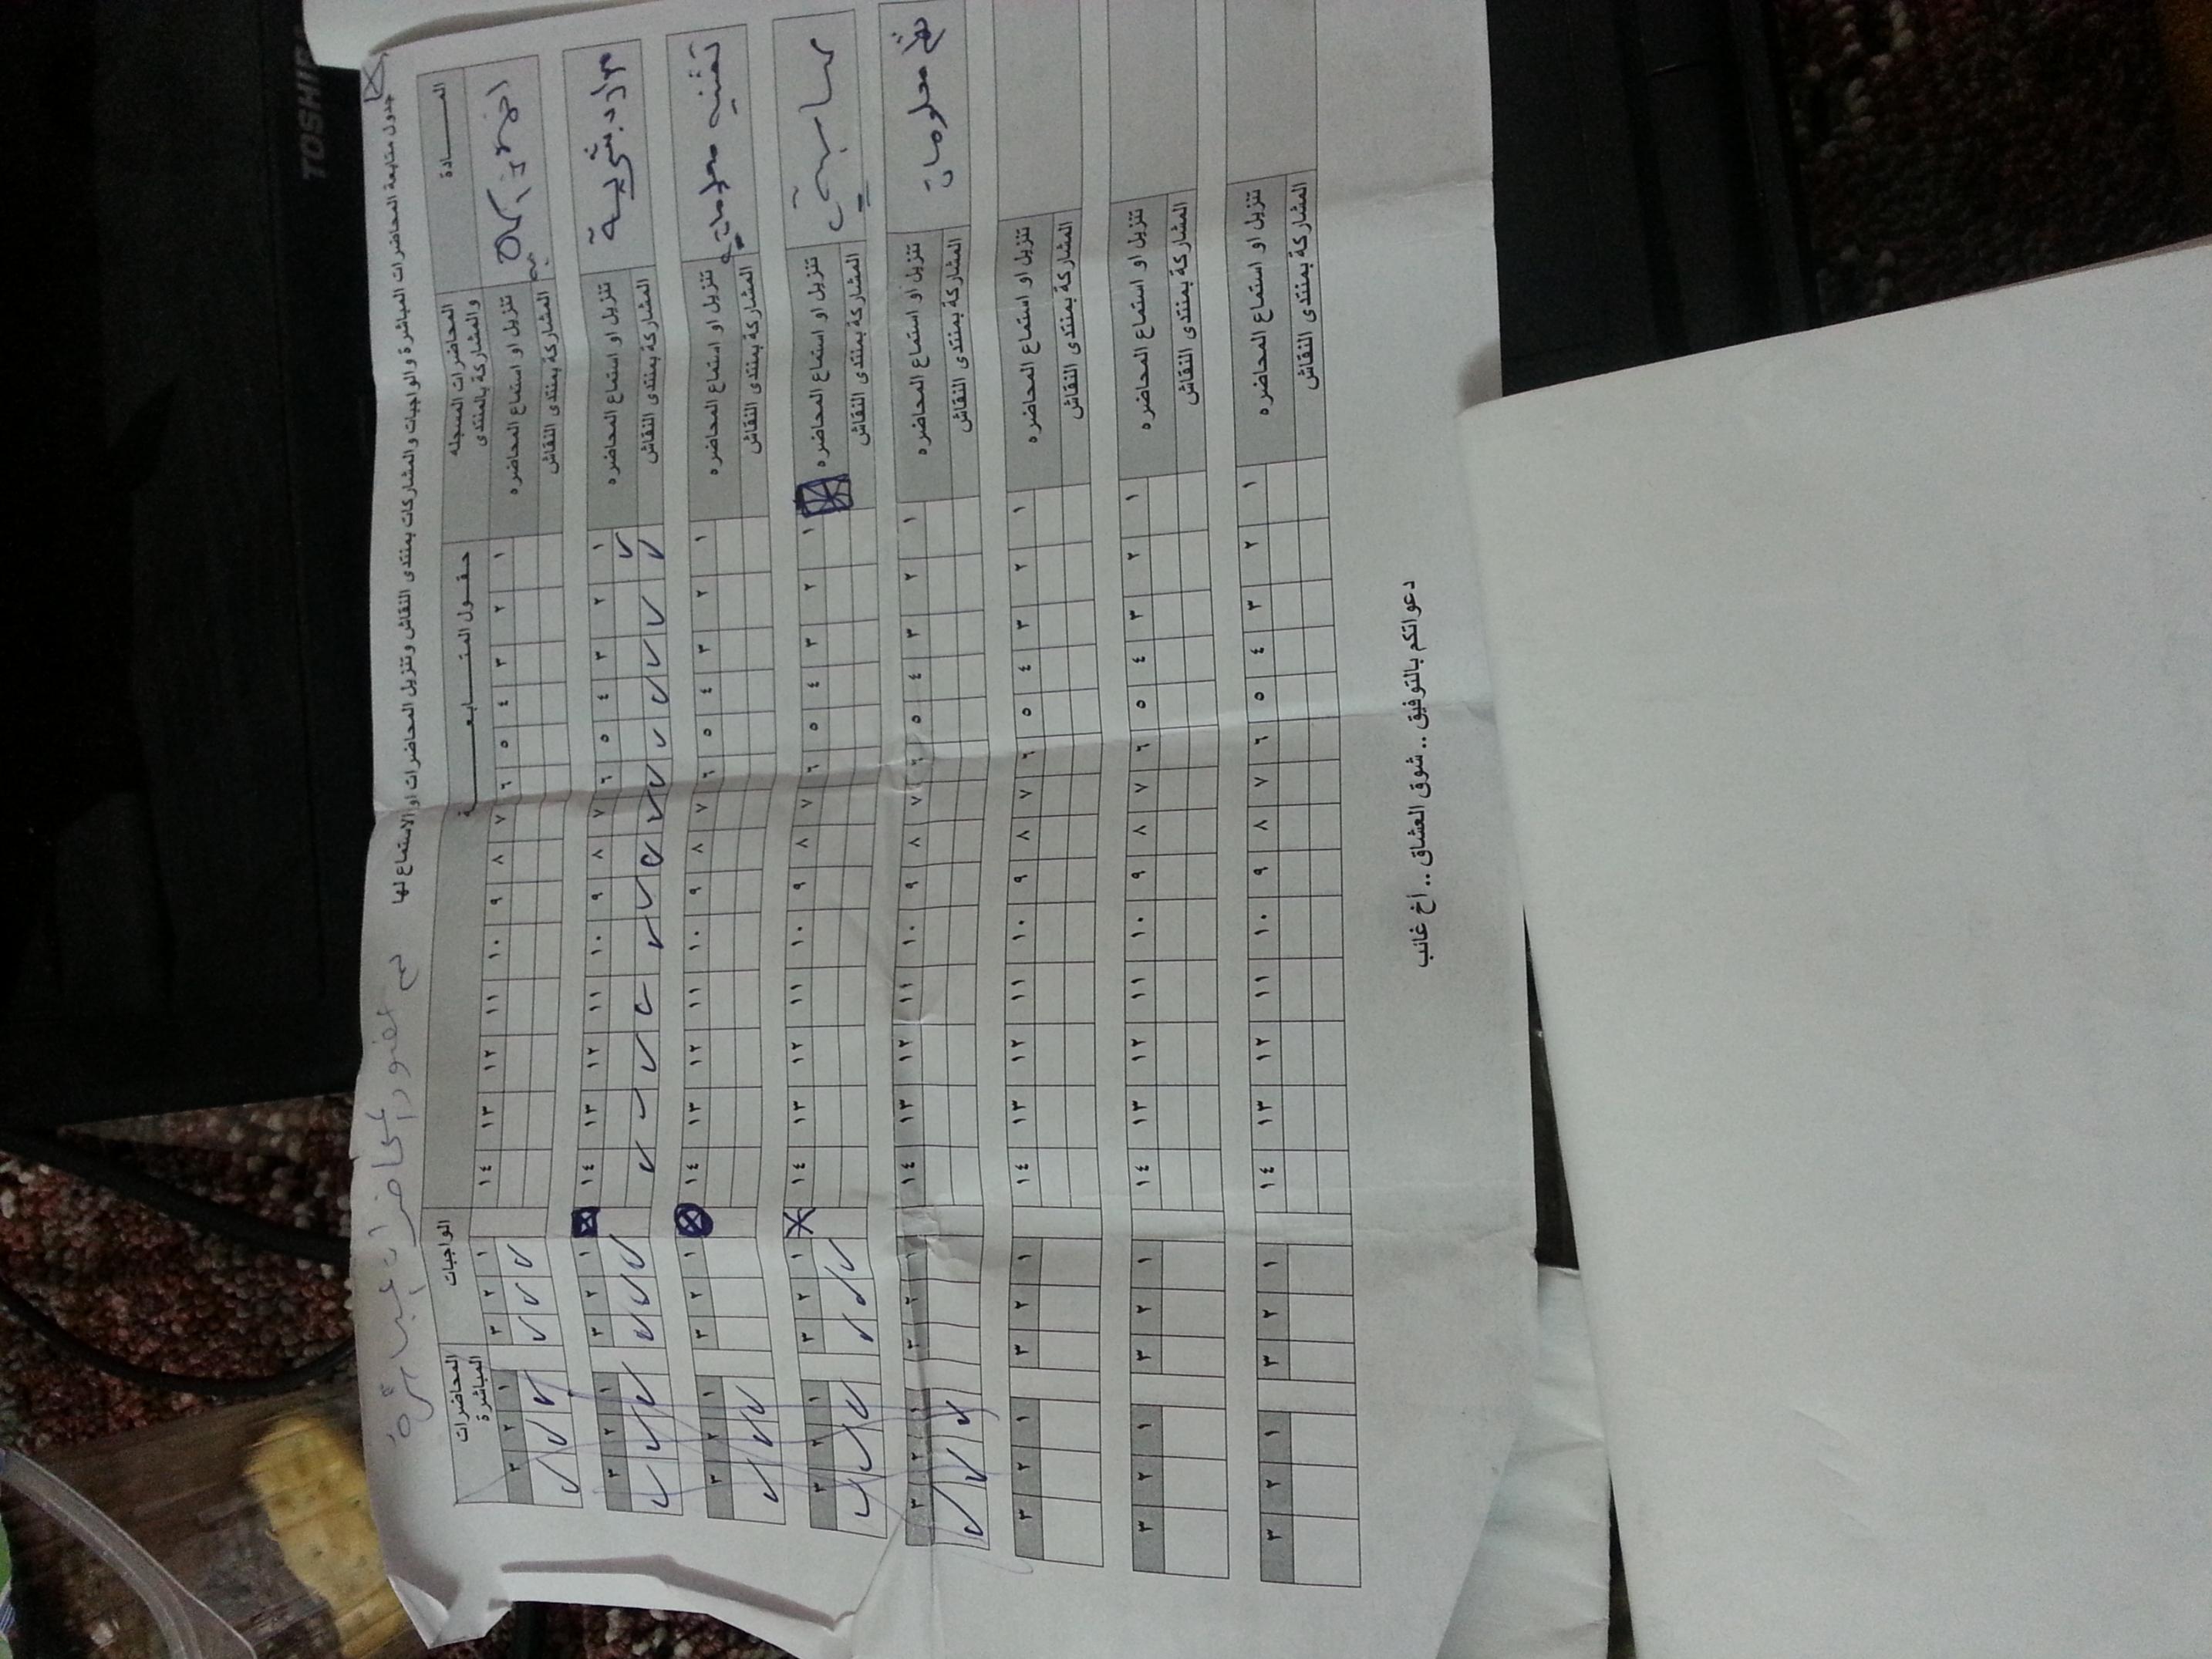 TOSHIB
جدول متابعة المحاضرات المباشرة والواجبات والمشاركات بمنتدى النقاش وتنزيل المحاضرات او الاستماع لها
تم حضور المحاضرات المباشرة
المـــــادة
المحاضرات المسجله والمشاركة بالمنتدى
حقـــول المتـــــابعــــــــة
الواجبات
المحاضرات المباشرة
تنزيل او استماع المحاضره ١ ٢ ٣ ٤ ٥ ٦ ٧ ٨ ٩ ١٠ ١١ ١٢ ١٣ ١٤ ١ ٢ ٣ ١ ٢ ٣
المشاركة بمنتدى النقاش
موارد بشرية
تنزيل او استماع المحاضره ١ ٢ ٣ ٤ ٥ ٦ ٧ ٨ ٩ ١٠ ١١ ١٢ ١٣ ١٤ ١ ٢ ٣ ١ ٢ ٣
المشاركة بمنتدى النقاش
تقنيه معلومات
تنزيل او استماع المحاضره ١ ٢ ٣ ٤ ٥ ٦ ٧ ٨ ٩ ١٠ ١١ ١٢ ١٣ ١٤ ١ ٢ ٣ ١ ٢ ٣
المشاركة بمنتدى النقاش
تنزيل او استماع المحاضره ١ ٢ ٣ ٤ ٥ ٦ ٧ ٨ ٩ ١٠ ١١ ١٢ ١٣ ١٤ ١ ٢ ٣ ١ ٢ ٣
المشاركة بمنتدى النقاش
نظم معلومات
تنزيل او استماع المحاضره ١ ٢ ٣ ٤ ٥ ٦ ٧ ٨ ٩ ١٠ ١١ ١٢ ١٣ ١٤ ١ ٢ ٣ ١ ٢ ٣
المشاركة بمنتدى النقاش
تنزيل او استماع المحاضره ١ ٢ ٣ ٤ ٥ ٦ ٧ ٨ ٩ ١٠ ١١ ١٢ ١٣ ١٤ ١ ٢ ٣ ١ ٢ ٣
المشاركة بمنتدى النقاش
تنزيل او استماع المحاضره ١ ٢ ٣ ٤ ٥ ٦ ٧ ٨ ٩ ١٠ ١١ ١٢ ١٣ ١٤ ١ ٢ ٣ ١ ٢ ٣
المشاركة بمنتدى النقاش
تنزيل او استماع المحاضره ١ ٢ ٣ ٤ ٥ ٦ ٧ ٨ ٩ ١٠ ١١ ١٢ ١٣ ١٤ ١ ٢ ٣ ١ ٢ ٣
المشاركة بمنتدى النقاش
دعواتكم بالتوفيق .. شوق العشاق .. اخ غائب